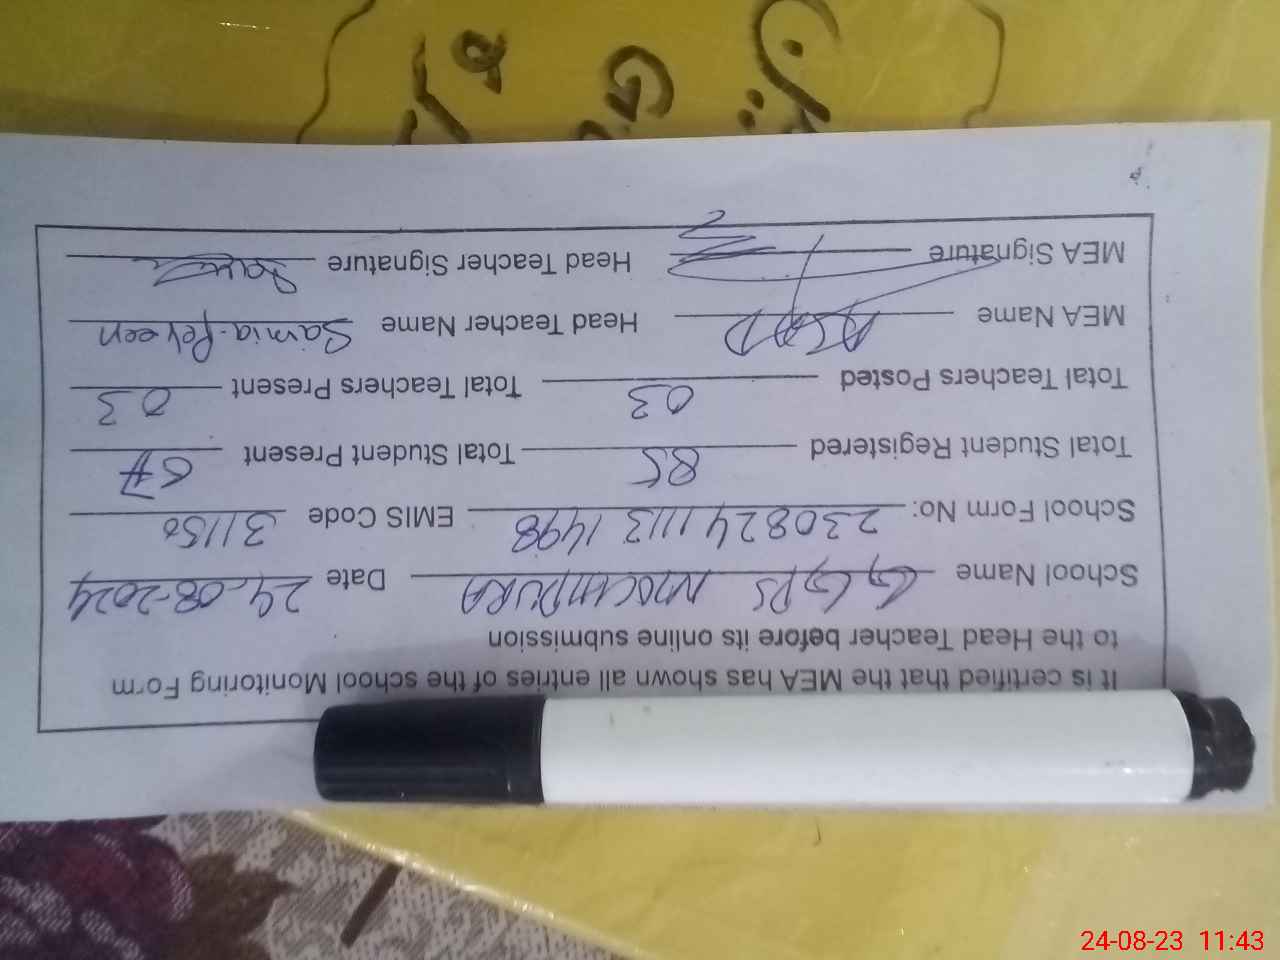 It is certified that the MEA has shown all entries of the school Monitoring Form
to the Head Teacher before its online submission
School Name GGPS MOCHIPURA Date 24-08-2024
School Form No: 2308241113 1498 EMIS Code 31150
Total Student Registered 85 Total Student Present
Total Teachers Posted 03 Total Teachers Present 03
MEA Name ASAD Head Teacher Name Samia Perveen
MEA Signature Head Teacher Signature
24-08-23 11:43